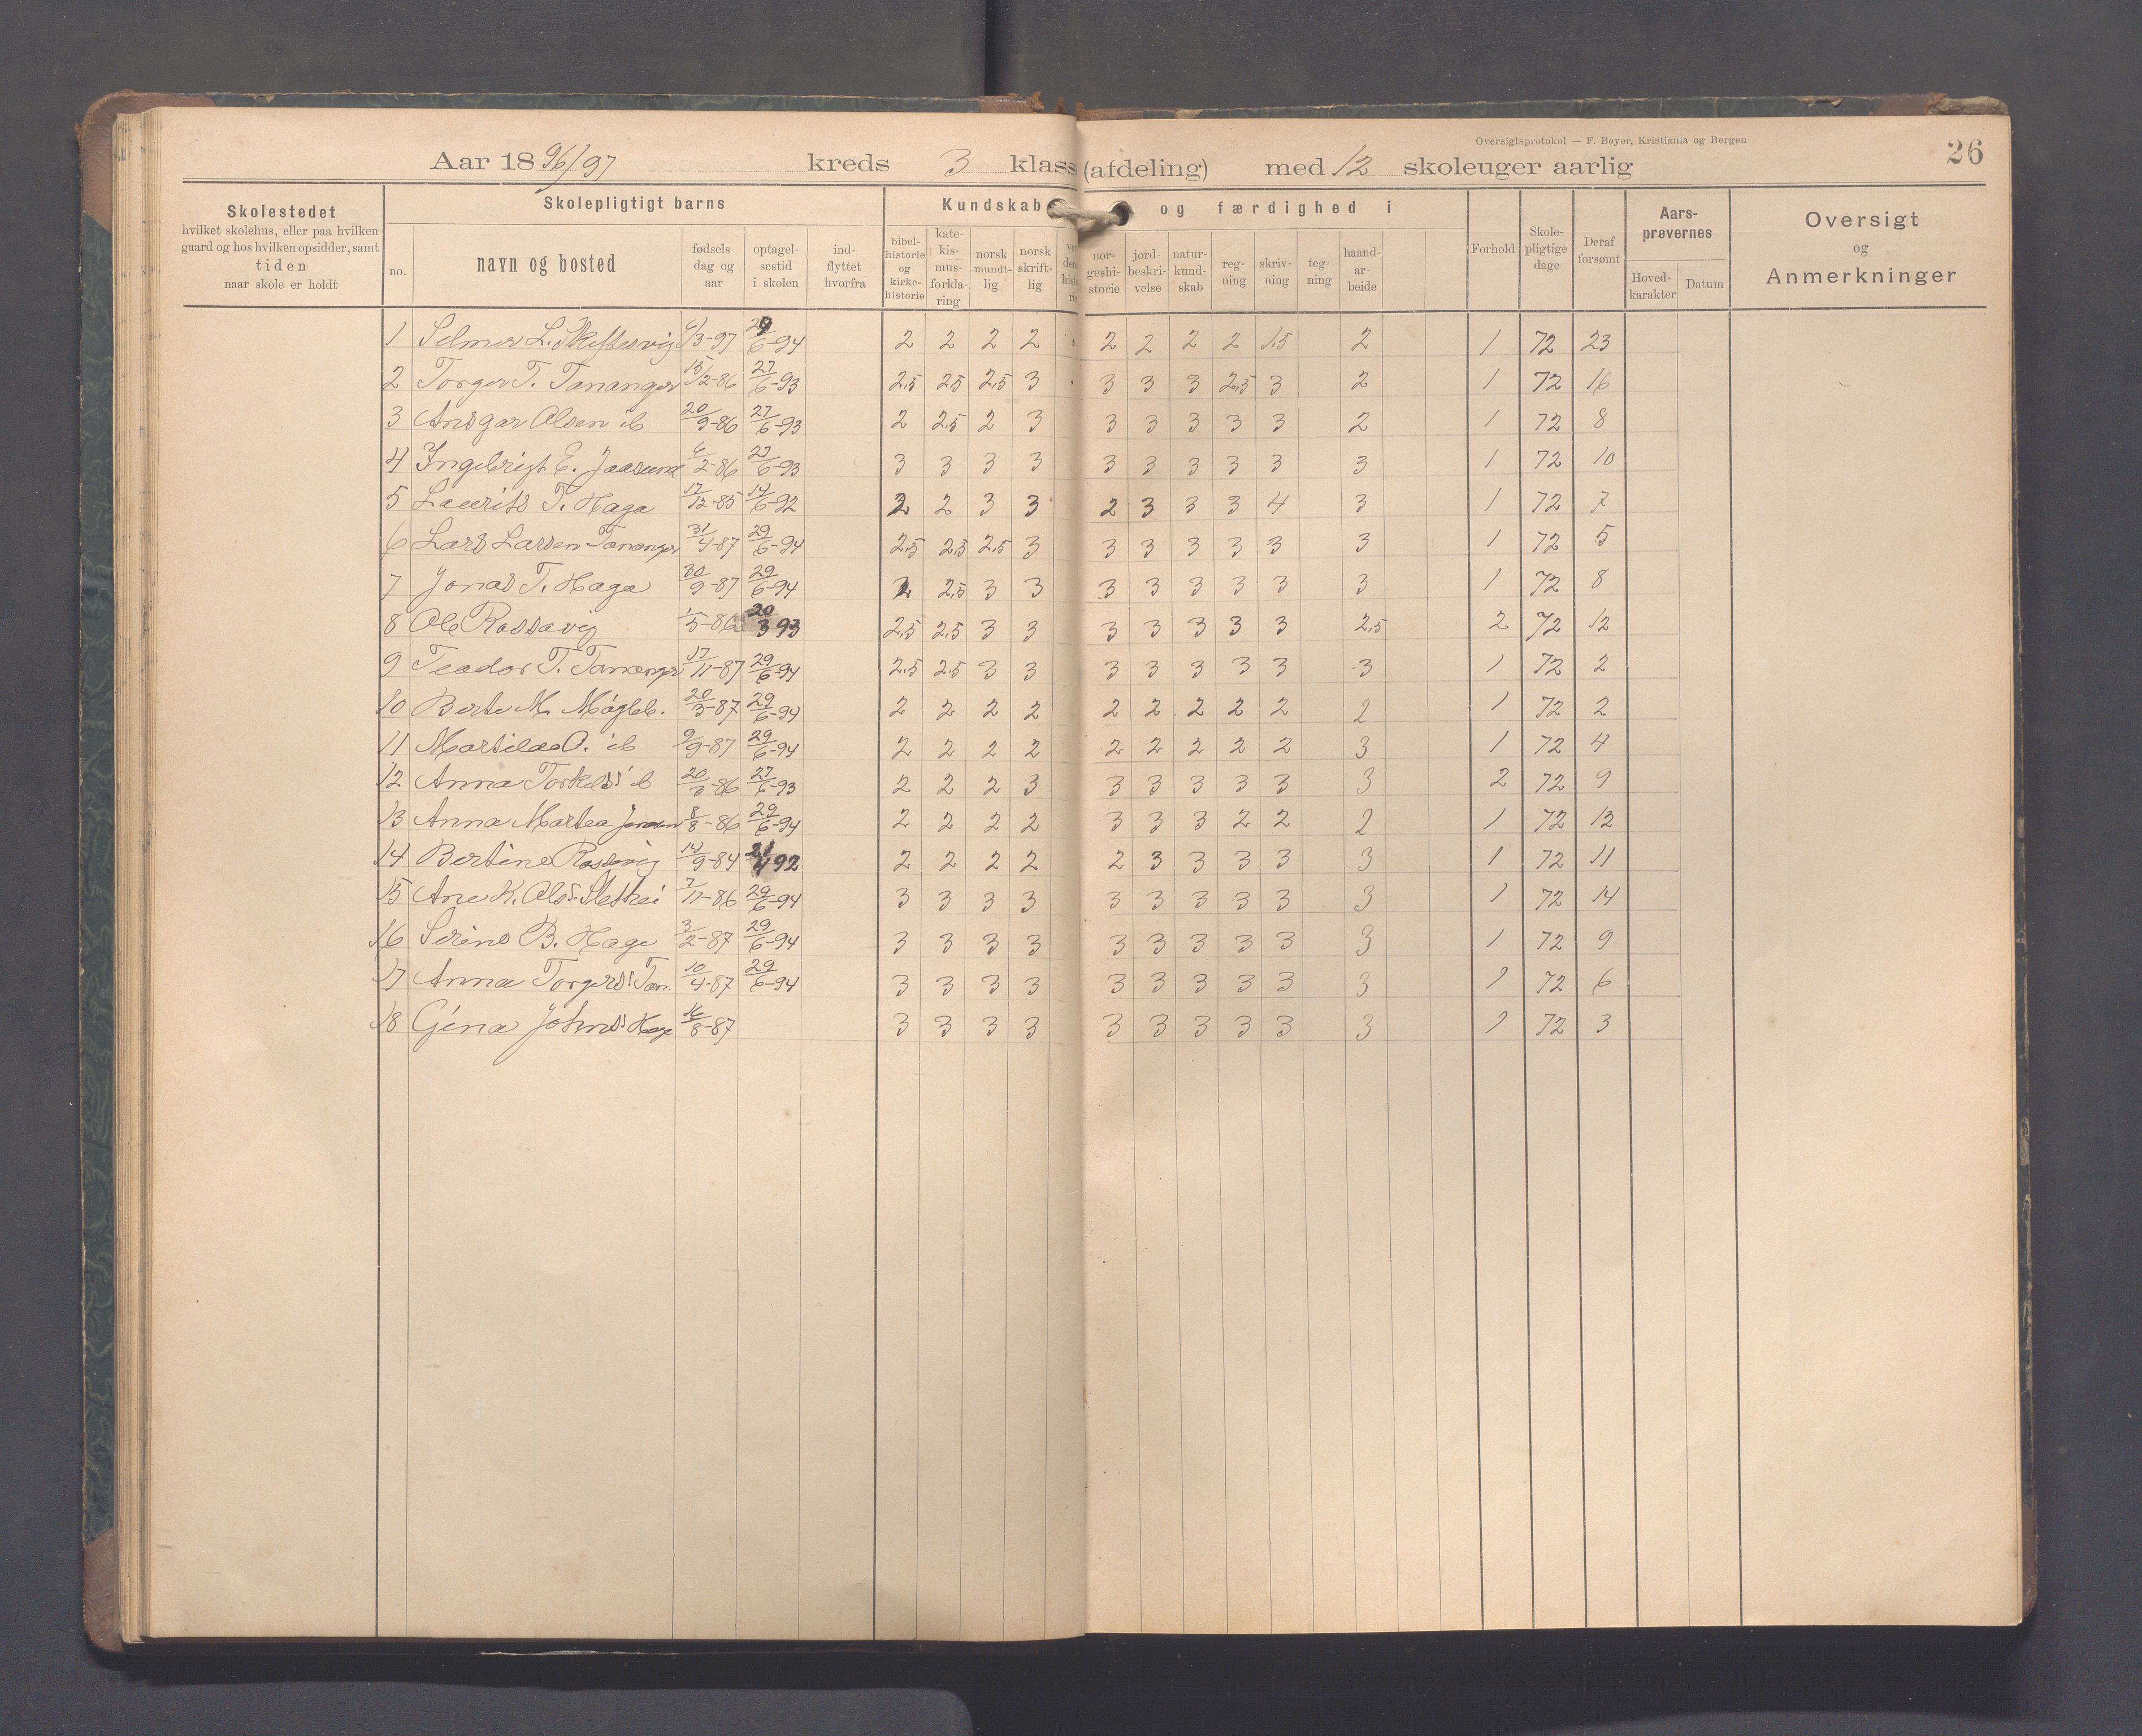 Oversigtsprotokol — F. Beyer, Kristiania og Bergen
26
Aar 1896/97 kreds 3 klasse (afdeling) med 12 skoleuger aarlig
Skolestedet
hvilket skolehus, eller paa hvilken
gaard og hos hvilken opsidder, samt
tiden
naar skole er holdt
Skolepligtigt barns
no.
navn og bosted
fødsels-
dag og
aar
optagel-
sestid
i skolen
ind-
flyttet
hvorfra
Kundskab og færdighed i
bibel-
historie
og
kirke-
historie
kate-
kis-
mus-
forkla-
ring
norsk
mundt-
lig
norsk
skrift-
lig
nor-
geshi-
storie
jord-
beskri-
velse
natur-
kund-
skab
reg-
ning
skriv-
ning
teg-
ning
haand-
ar-
beide
Forhold
Skole-
pligtige
dage
Deraf
forsømt
Aars-
prøvernes
Hoved-
karakter
Datum
Oversigt
og
Anmerkninger
1 Selmer L. 6/3-97 29/6-94 2 2 2 2 2 2 2 2 1.5 2 1 72 23
2 Torger T. Tananger 15/12-86 27/6-93 2,5 2,5 2,5 3 3 3 3 2,5 3 2 1 72 16
3 Ansgar Olsen ib 20/9-86 27/6-93 2 2,5 2 3 3 3 3 3 3 2 1 72 8
4 Ingebrigt E. Jaasund 6/2-86 27/6-93 3 3 3 3 3 3 3 3 3 3 1 72 10
5 Laurits T. Haga 17/12-85 14/6-92 2 2 3 3 2 3 3 3 4 3 1 72 7
6 Lars Larsen Tananger 31/4-87 29/6-94 2,5 2,5 2,5 3 3 3 3 3 3 3 1 72 5
7 Jonas T. Haga 30/9-87 29/6-94 2,5 3 3 3 3 3 3 3 3 1 72 8
8 Ole Rossavig 1/5-86 20/3 93 2,5 2,5 3 3 3 3 3 3 3 2,5 2 72 12
9 Teodor T. Tananger 17/11-87 29/6-94 2,5 2,5 3 3 3 3 3 3 3 3 1 72 2
10 Berte M. 20/3-87 29/6-94 2 2 2 2 2 2 2 2 2 2 1 72 2
11 O. ib 9/9-87 29/6-94 2 2 2 2 2 2 2 2 2 3 1 72 4
12 Anna Torkelsd ib 20/3-86 27/6-93 2 2 2 3 3 3 3 3 3 3 2 72 9
13 Anna Martea Jensen 8/8-86 29/6-94 2 2 2 2 3 3 3 2 2 2 1 72 12
14 Bertine Rossavig 14/9-84 21/4 92 2 2 2 2 2 3 3 3 3 3 1 72 11
15 Ane K. Olsd. 7/11-86 29/6-94 3 3 3 3 3 3 3 3 3 3 1 72 14
16 Serine B. Haga 3/2-87 29/6-94 3 3 3 3 3 3 3 3 3 3 1 72 9
17 Anna Torgersd Tan. 10/4-87 29/6-94 3 3 3 3 3 3 3 3 3 3 1 72 6
18 Gina Johnsd Haga 16/8-87 3 3 3 3 3 3 3 3 3 3 1 72 3